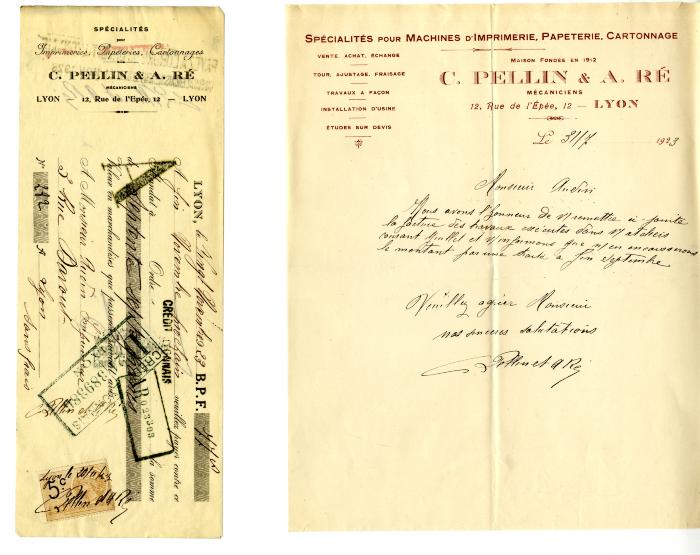 SPÉCIALITÉS
POUR
Imprimeries, Papeteries, Cartonnages
C. PELLIN & A. RÉ
MÉCANICIENS
LYON — 12, Rue de l'Epée, 12 — LYON
LYON, le 23 B.P.F.
fin prochain veuillez payer contre ce
Mandat à Ordre la somme
de
Valeur en marchandises que passerez suivant avis
A Monsieur Audin
3 Rue Davout
à Lyon
Sans frais
CRÉDIT LYONNAIS
023308
389381
Pellin et A Ré
Lyon le
5c
Pellin et A Ré
SPÉCIALITÉS POUR MACHINES D'IMPRIMERIE, PAPETERIE, CARTONNAGE
VENTE, ACHAT, ÉCHANGE
TOUR, AJUSTAGE, FRAISAGE
TRAVAUX A FAÇON
INSTALLATION D'USINE
ÉTUDES SUR DEVIS
MAISON FONDÉE EN 1912
C. PELLIN & A. RÉ
MÉCANICIENS
12, Rue de l'Epée, 12 — LYON
Le 31/7 1923
Monsieur Audin
Nous avons l'honneur de V remettre
la facture des travaux exécutés dans V ateliers
courant Juillet et V informons que n/ en encaisserons
le montant par une traite à fin Septembre
Veuillez agréer Monsieur
nos sincères salutations
Pellin et A Ré